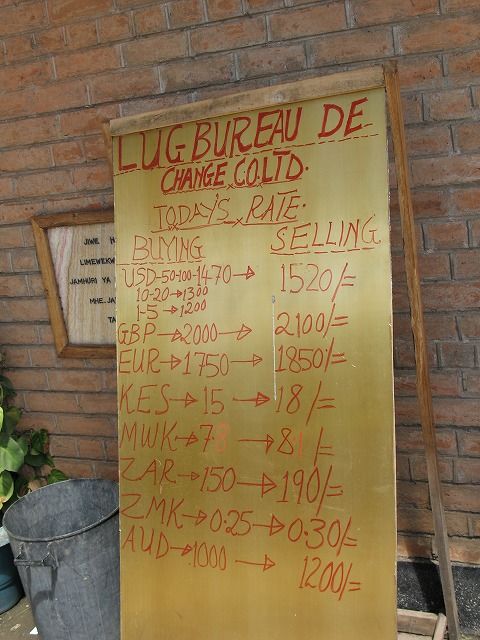 LUG BUREAU DE
CHANGE CO. LTD.
TODAY'S RATE.
BUYING SELLING
USD-50-100-1470→ 1520/=
10-20→1300
1-5→1200
GBP→2000→ 2100/=
EUR→1750→ 1850/=
KES→15→18/=
MWK→7.8→8.1/=
ZAR→150→190/=
ZMK→0.25→0.30/=
AUD→1000→1200/=
JIWE
LIMEWEKW
JAMHURI YA
MHE. JA
TA